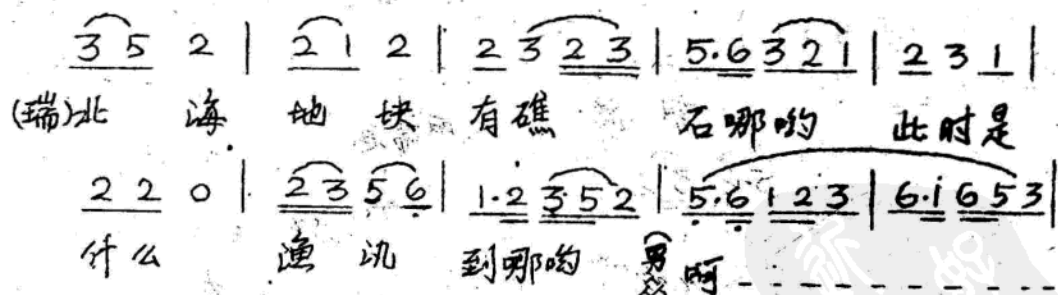 3 5 2 | 2 1 2 | 2 3 2 3 | 5·6 3 2 1 | 2 3 1 |
(瑞)北 海 地 块 有 礁 石哪哟 此时是
2 2 0 | 2 3 5 6 | 1·2 3·5 2 | 5·6 1 2 3 | 6·i 6 5 3 |
什么 渔 汛 到哪哟 男众 啊 - - - - - - - - - -